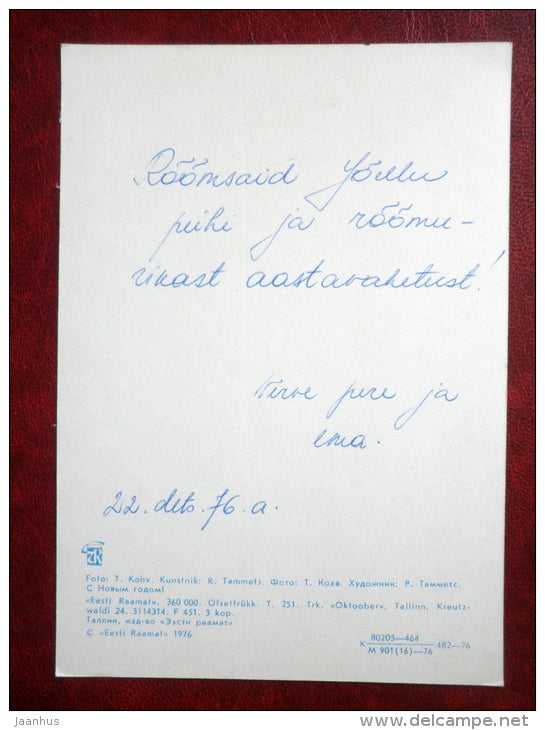 Rõõmsaid Jõulu
pühi ja rõõmu-
rikast aastavahetust!
Virve pere ja
ema.
22. dets. 76. a.
Foto: T. Kohv. Kunstnik: R. Tammets. Фото: Т. Кохв. Художник: Р. Тамметс.
С Новым годом!
«Eesti Raamat». 360 000. Ofsettrükk. T. 251. Trk. «Oktoober», Tallinn, Kreutz-
waldi 24. 3114314. F 451. 3 kop.
Таллин, изд-во «Ээсти раамат»
© «Eesti Raamat» 1976
К 80205—464 / М 901(16)—76 482—76
Jaanhus
www.delcampe.net